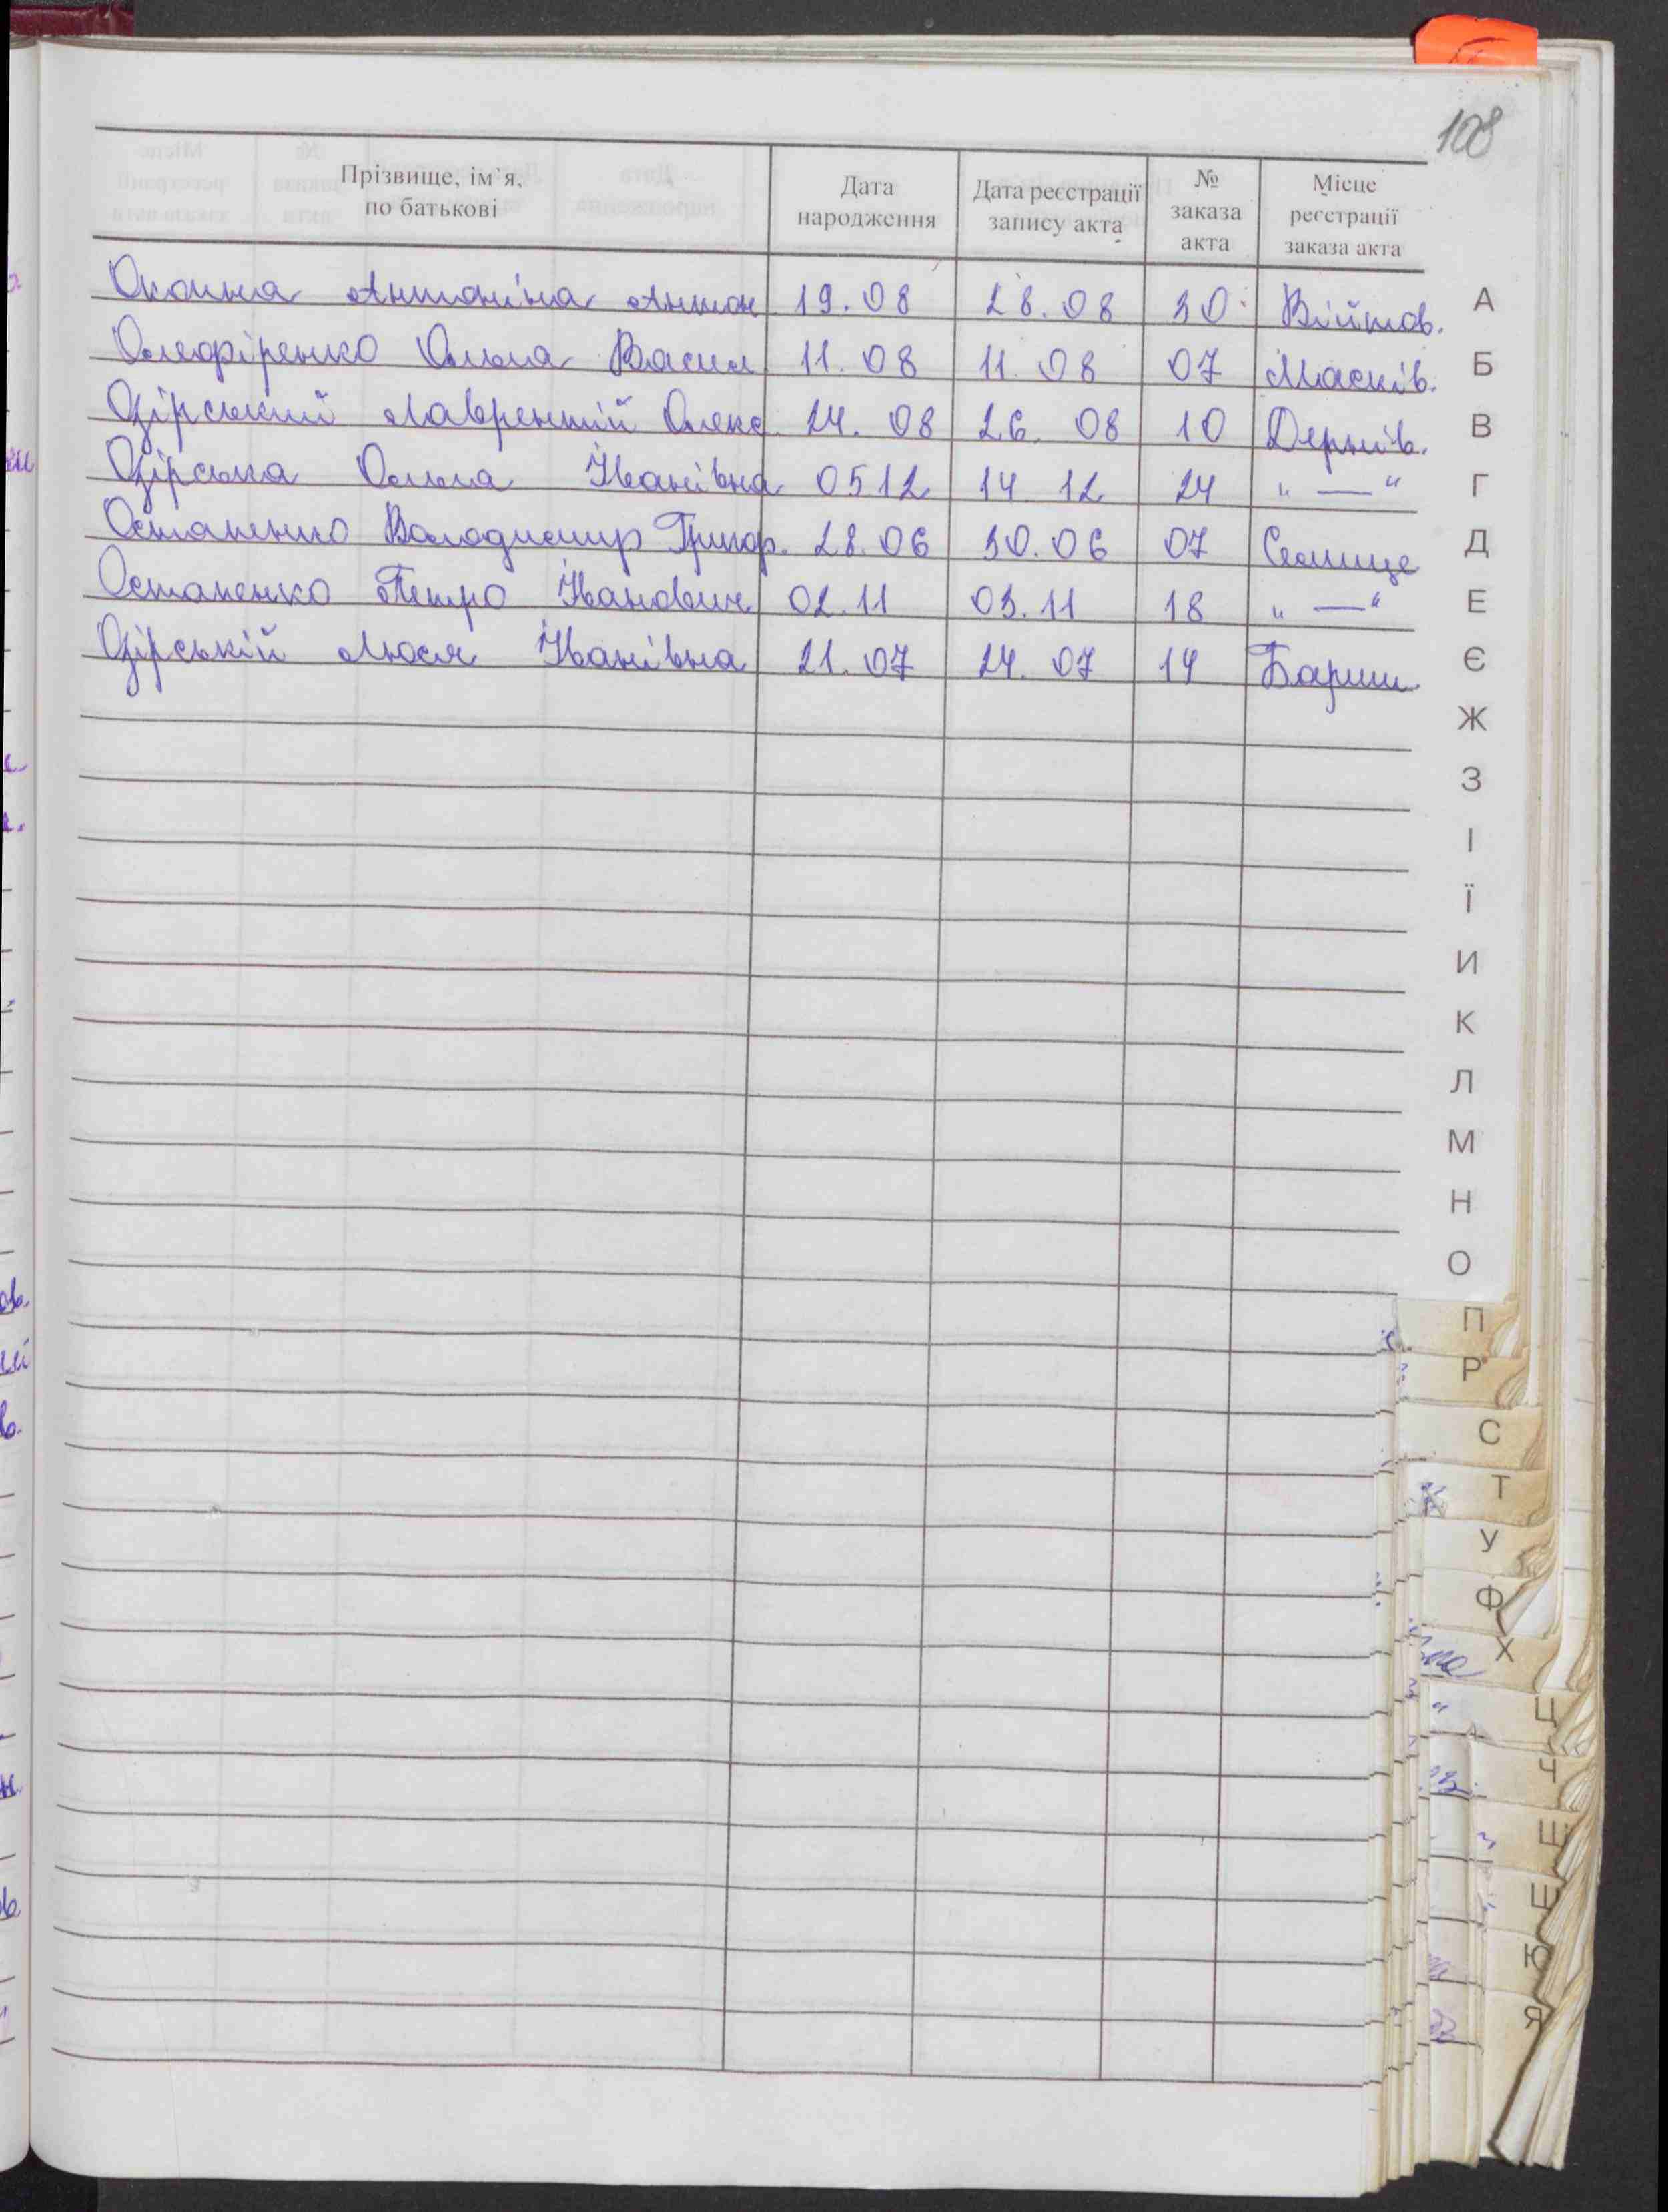 108
Прізвище, ім'я, по батькові Дата народження Дата реєстрації запису акта № заказа акта Місце реєстрації заказа акта
Антоніна Антон 19.08 28.08 30 Війтов. А
Олефіренко Ольга Васил 11.08 11.08 07 Масків. Б
Озірський Лаврентій Олекс. 24.08 26.08 10 Дернів. В
Озірська Ольга Іванівна 0512 14 12 24 " — " Г
Остапенко Володимир Григор. 28.06 30.06 07 Селище Д
Остапенко Петро Іванович 02.11 03.11 18 " — " Е
Озірській Люся Іванівна 21.07 24.07 14 Бариш. Є
Ж
З
І
Ї
И
К
Л
М
Н
О
П
Р
С
Т
У
Ф
Х
Ц
Ч
Ю
Я